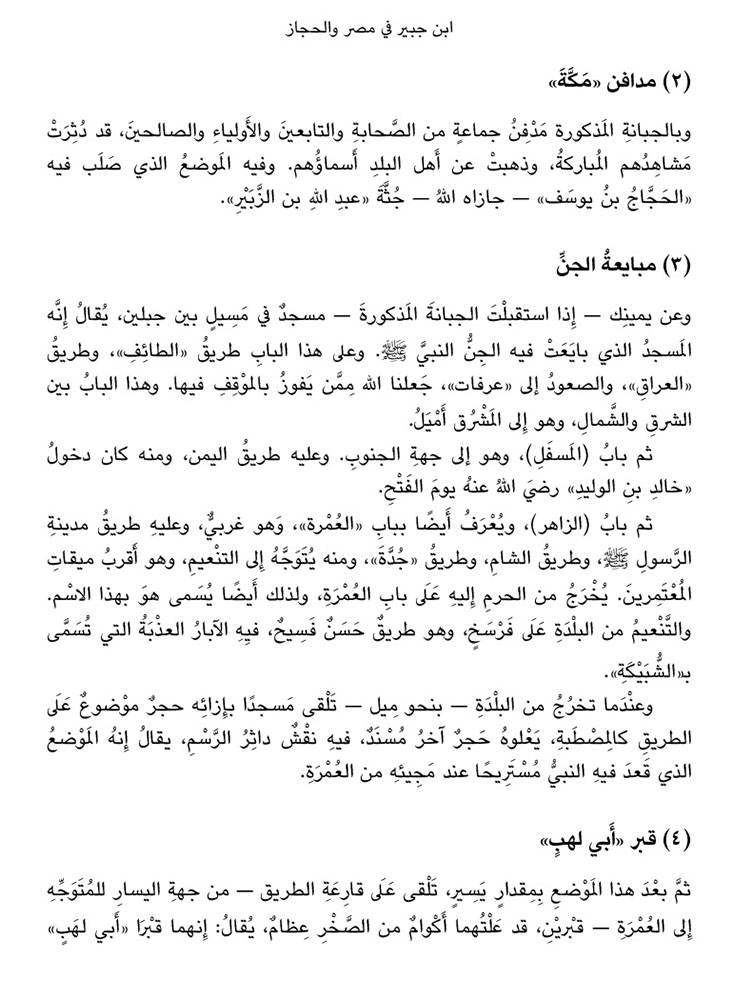 ابن جبير في مصر والحجاز
(٢) مدافن «مَكَّةَ»
وبالجبانةِ المَذكورة مَدْفِنُ جماعةٍ من الصَّحابةِ والتابعينَ والأَولياءِ والصالحينَ، قد دُثِرَتْ
مَشاهِدُهم المُباركةُ، وذهبتْ عن أَهل البلدِ أَسماؤُهم. وفيه المَوضعُ الذي صَلَب فيه
«الحَجَّاجُ بنُ يوسَف» — جازاه اللهُ — جُثَّةَ «عبدِ اللهِ بن الزَّبَيْرِ».
(٣) مبايعةُ الجنِّ
وعن يمينِك — إِذا استقبلْتَ الجبانةَ المَذكورةَ — مسجدٌ في مَسِيلٍ بين جبلين، يُقالُ إِنَّه
المَسجدُ الذي بايَعَتْ فيه الجِنُّ النبيَّ ﷺ. وعلى هذا البابِ طريقُ «الطائِفِ»، وطريقُ
«العراقِ»، والصعودُ إلى «عرفات»، جَعلنا الله مِمَّن يَفوزُ بالموْقِفِ فيها. وهذا البابُ بين
الشرقِ والشَّمالِ، وهو إِلى المَشْرُق أَمْيَلُ.
ثم بابُ (المَسفَلِ)، وهو إلى جهةِ الجنوبِ. وعليه طريقُ اليمن، ومنه كان دخولُ
«خالدِ بنِ الوليدِ» رضيَ اللهُ عنهُ يومَ الفَتْحِ.
ثم بابُ (الزاهر)، ويُعْرَفُ أَيضًا ببابِ «العُمْرة»، وَهو غربيٌّ، وعليهِ طريقُ مدينةِ
الرَّسولِ ﷺ، وطريقُ الشامِ، وطريقُ «جُدَّةَ»، ومنه يُتَوَجَّهُ إِلى التنْعيمِ، وهو أَقربُ ميقاتِ
المُعْتَمِرينَ. يُخْرَجُ من الحرمِ إليهِ عَلَى بابِ العُمْرَةِ، ولذلك أَيضًا يُسَمى هوَ بهذا الاسْم.
والتَّنْعيمُ من البلْدَةِ عَلَى فَرْسَخٍ، وهو طريقٌ حَسَنٌ فَسِيحٌ، فيِهِ الآبارُ العذْبَةُ التي تُسَمَّى
بـ«الشُّبَيْكَةِ».
وعنْدَما تخرُجُ من البلْدَةِ — بنحوِ مِيل — تَلْقى مَسجدًا بإزائِه حجرٌ موْضوعٌ عَلَى
الطريقِ كالمِصْطَبةِ، يَعْلوهُ حَجرٌ آخرُ مُسْنَدٌ، فيهِ نقْشٌ داثِرُ الرَّسْمِ، يقالُ إِنهُ المَوْضعُ
الذي قَعدَ فيهِ النبيُّ مُسْتَرِيحًا عند مَجِيئِه من العُمْرَةِ.
(٤) قبر «أَبي لهبٍ»
ثمَّ بعْدَ هذا المَوْضعِ بِمِقدارٍ يَسِيرٍ، تَلْقى عَلَى قارعَةِ الطريق — من جهةِ اليسارِ للمُتَوَجِّهِ
إِلى العُمْرَةِ — قبْريْنِ، قد عَلَتْهُما أَكْوامٌ من الصَّخْرِ عِظامٌ، يُقالُ: إِنهما قبْرَا «أَبي لهَبٍ»